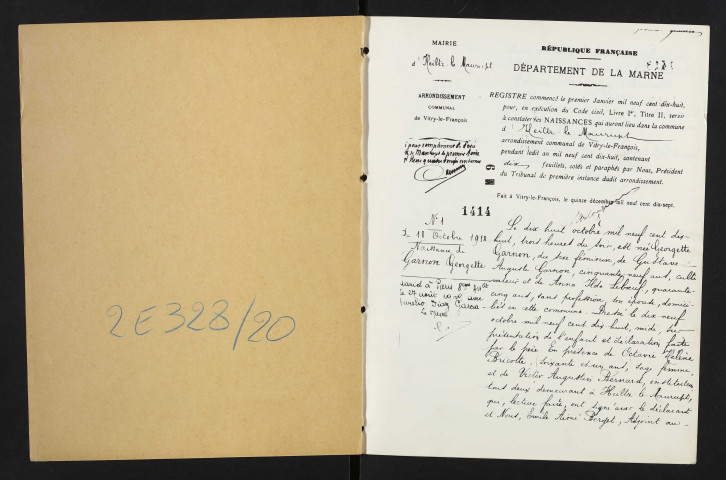 2E328/20
MAIRIE
d'Heiltz le Maurupt
ARRONDISSEMENT
COMMUNAL
de Vitry-le-François
RÉPUBLIQUE FRANÇAISE
DÉPARTEMENT DE LA MARNE
REGISTRE commencé le premier Janvier mil neuf cent dix-huit,
pour, en exécution du Code civil, Livre Ier, Titre II, servir
à constater les NAISSANCES qui auront lieu dans la commune
d'Heiltz le Maurupt
arrondissement communal de Vitry-le-François,
pendant ledit an mil neuf cent dix-huit, contenant
dix feuillets, cotés et paraphés par Nous, Président
du Tribunal de première instance dudit arrondissement.
Fait à Vitry-le-François, le quinze décembre mil neuf cent dix-sept.
1414
N° 1
Le 18 Octobre 1918
Naissance de
Garnon Georgette
marié à Paris
le 27 août
Garcia
Le dix huit octobre mil neuf cent dix-
huit, trois heures du soir, est née Georgette
Garnon, du sexe féminin, de Gustave
Auguste Garnon, cinquante neuf ans, culti
vateur et de Anna Ilda Lebœuf, quarante-
cinq ans, sans profession, son épouse, domici-
liés en cette commune. Dressé le dix neuf
octobre mil neuf cent dix huit, midi, sur
présentation de l'enfant et déclaration faite
par le père. En présence de Octavie Hélène
Bricotte, soixante et un ans, sage femme,
et de Victor Augustin Bernard, instituteur
tous deux demeurant à Heiltz le Maurupt,
qui, lecture faite, ont signé avec le déclarant
et Nous, Emile Aimé Berget, Adjoint au